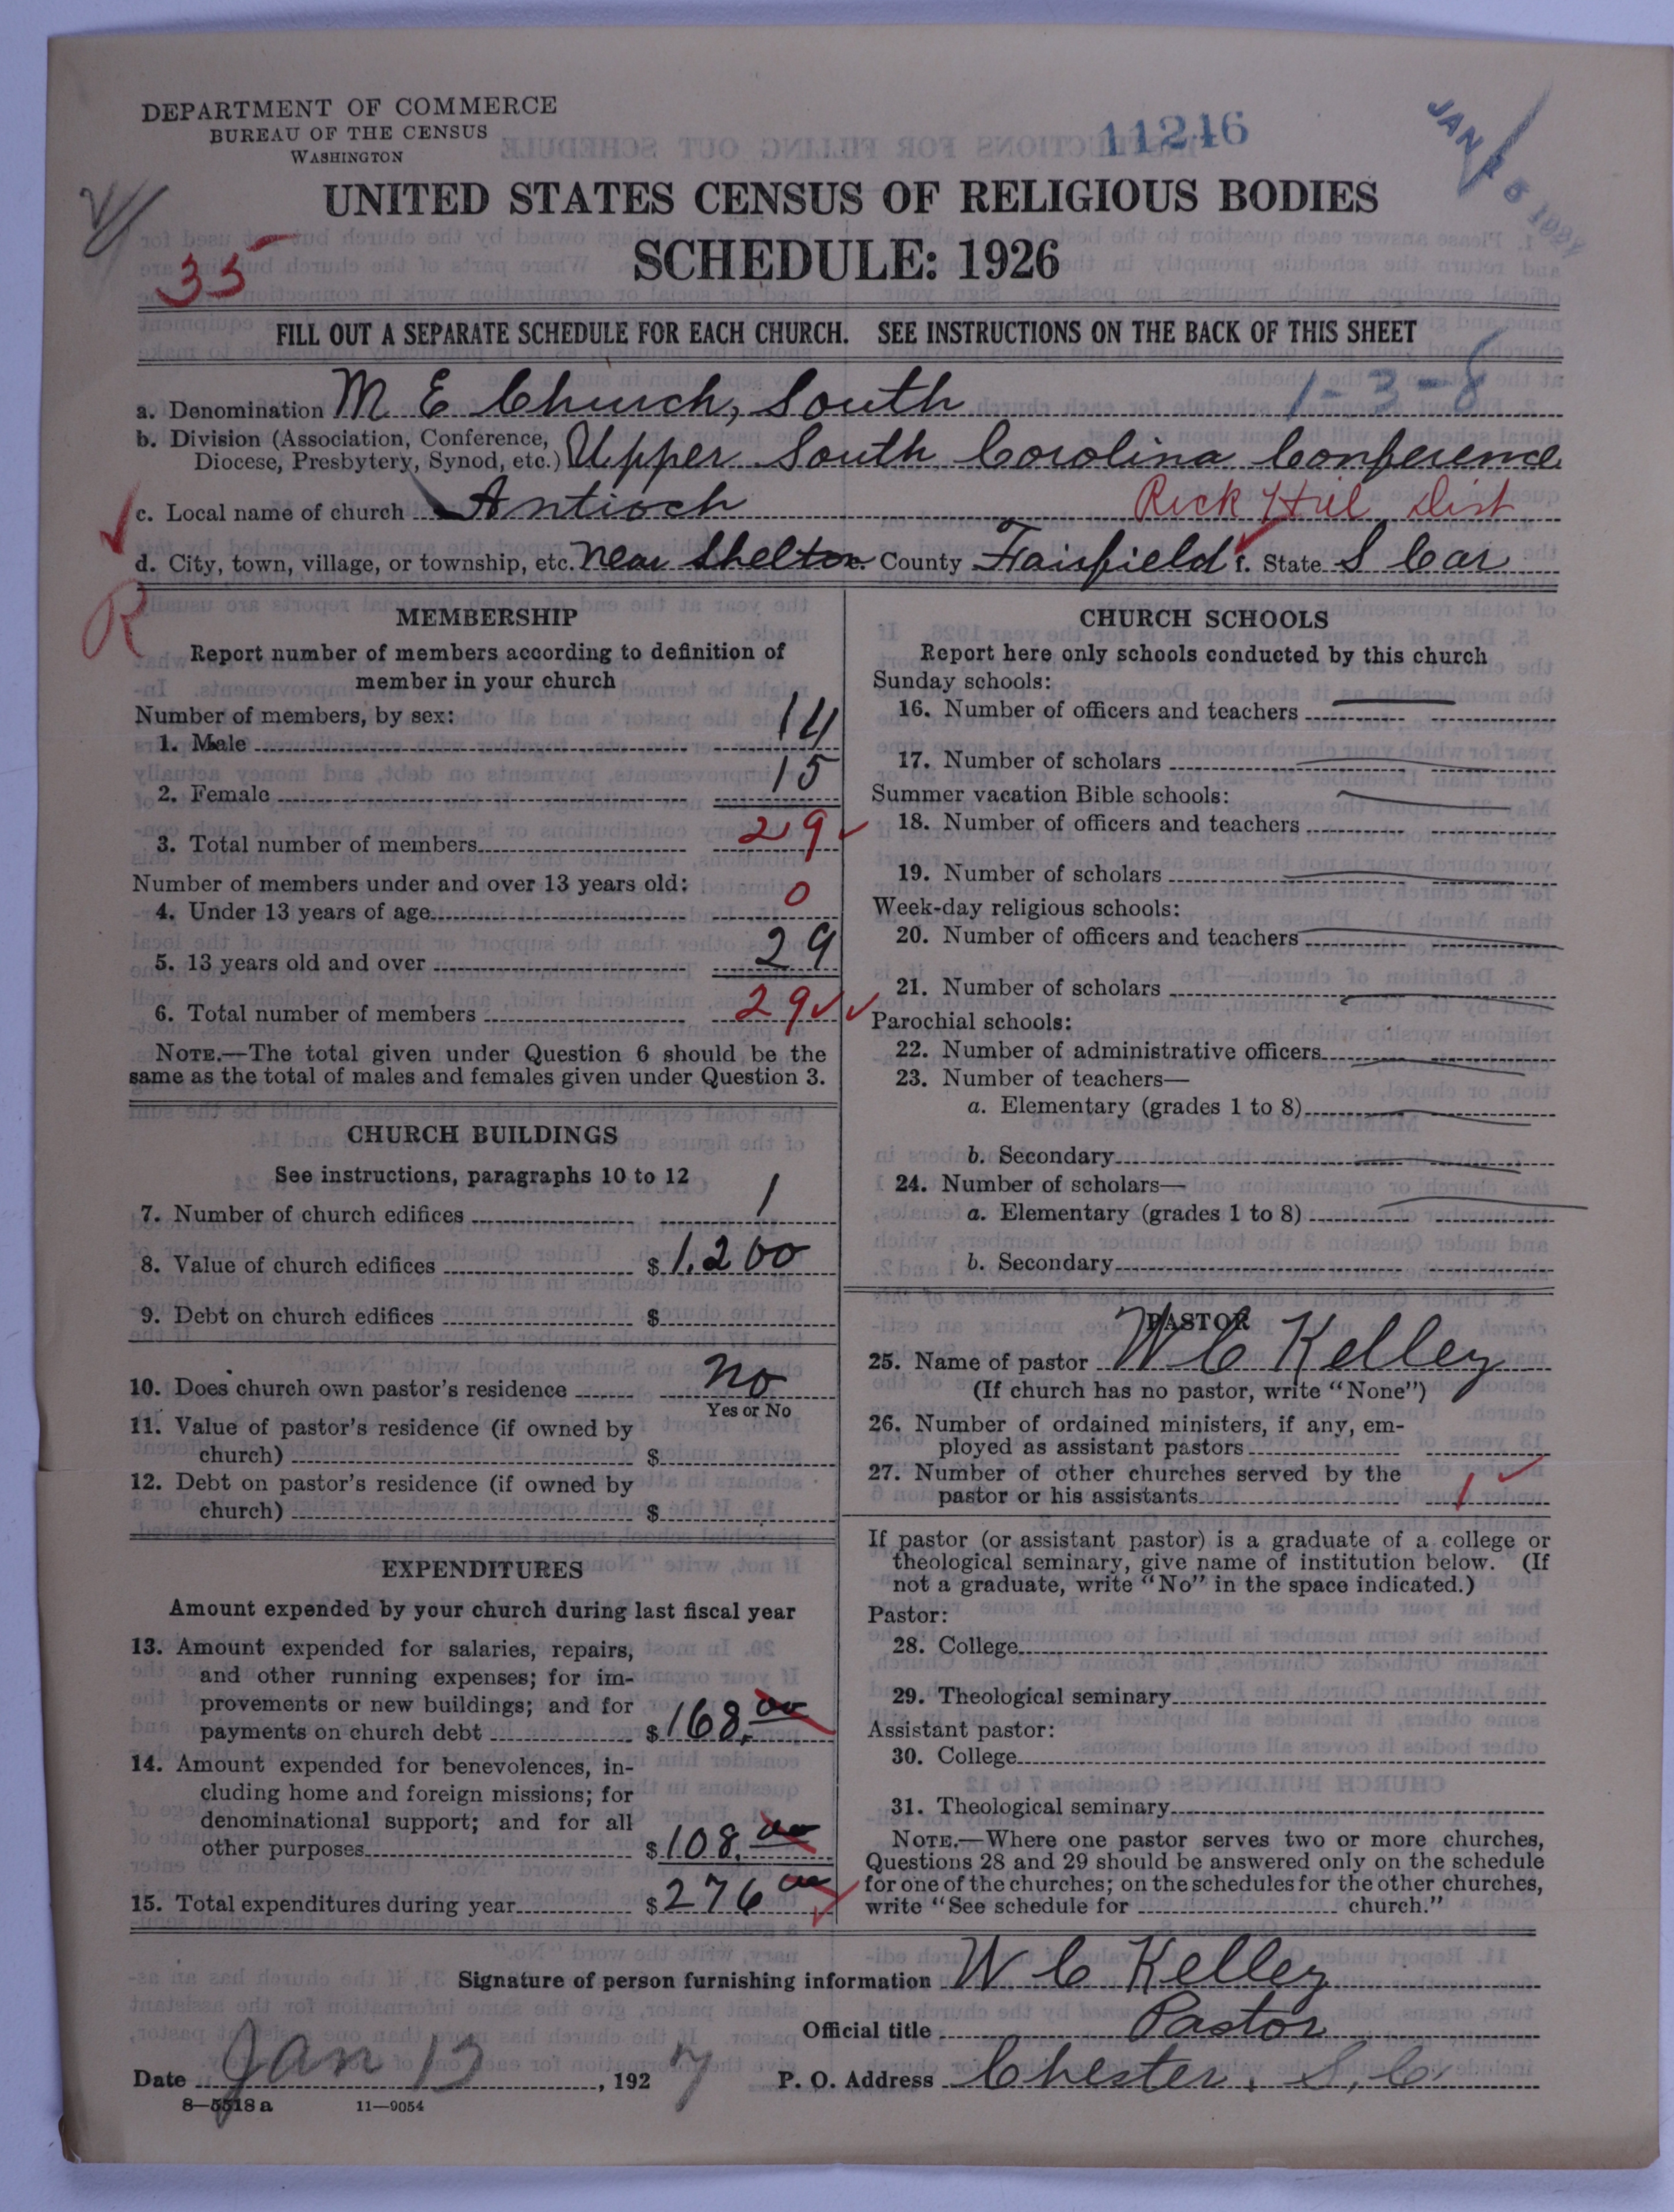 DEPARTMENT OF COMMERCE
BUREAU OF THE CENSUS
WASHINGTON
11246
UNITED STATES CENSUS OF RELIGIOUS BODIES
SCHEDULE: 1926
35
FILL OUT A SEPARATE SCHEDULE FOR EACH CHURCH. SEE INSTRUCTIONS ON THE BACK OF THIS SHEET
1-3-8
a. Denomination M E Church, South
b. Division (Association, Conference, Diocese, Presbytery, Synod, etc.) Upper South Carolina Conference
c. Local name of church Antioch Rock Hill Dist
d. City, town, village, or township, etc. near Shelton e. County Fairfield f. State S Car
R
MEMBERSHIP
Report number of members according to definition of
member in your church
Number of members, by sex:
1. Male 14
2. Female 15
3. Total number of members 29
Number of members under and over 13 years old:
4. Under 13 years of age 0
5. 13 years old and over 29
6. Total number of members 29
NOTE.—The total given under Question 6 should be the
same as the total of males and females given under Question 3.
CHURCH BUILDINGS
See instructions, paragraphs 10 to 12
7. Number of church edifices 1
8. Value of church edifices $1,200
9. Debt on church edifices $
10. Does church own pastor's residence no
Yes or No
11. Value of pastor's residence (if owned by
church) $
12. Debt on pastor's residence (if owned by
church) $
EXPENDITURES
Amount expended by your church during last fiscal year
13. Amount expended for salaries, repairs,
and other running expenses; for im-
provements or new buildings; and for
payments on church debt $168.00
14. Amount expended for benevolences, in-
cluding home and foreign missions; for
denominational support; and for all
other purposes $108.00
15. Total expenditures during year $276 00
CHURCH SCHOOLS
Report here only schools conducted by this church
Sunday schools:
16. Number of officers and teachers
17. Number of scholars
Summer vacation Bible schools:
18. Number of officers and teachers
19. Number of scholars
Week-day religious schools:
20. Number of officers and teachers
21. Number of scholars
Parochial schools:
22. Number of administrative officers
23. Number of teachers—
a. Elementary (grades 1 to 8)
b. Secondary
24. Number of scholars—
a. Elementary (grades 1 to 8)
b. Secondary
PASTOR
25. Name of pastor W C Kelley
(If church has no pastor, write "None")
26. Number of ordained ministers, if any, em-
ployed as assistant pastors
27. Number of other churches served by the
pastor or his assistants 1
If pastor (or assistant pastor) is a graduate of a college or
theological seminary, give name of institution below. (If
not a graduate, write "No" in the space indicated.)
Pastor:
28. College
29. Theological seminary
Assistant pastor:
30. College
31. Theological seminary
NOTE.—Where one pastor serves two or more churches,
Questions 28 and 29 should be answered only on the schedule
for one of the churches; on the schedules for the other churches,
write "See schedule for church."
Signature of person furnishing information W C Kelley
Official title Pastor
Date Jan 13, 1927 P. O. Address Chester, S. C.
8—5518a 11—9054